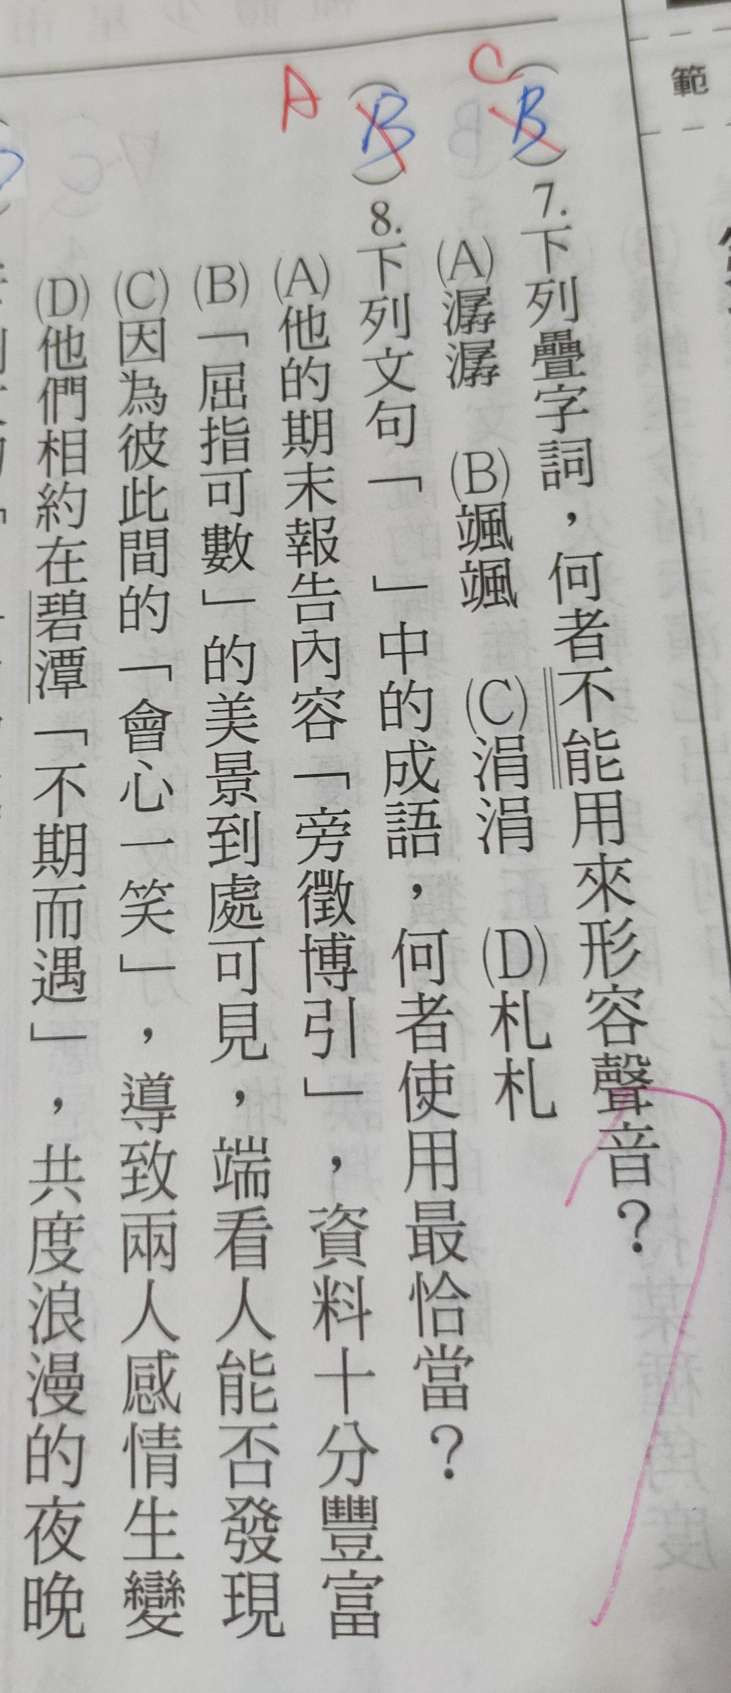 範
C
(B) 7. 下列疊字詞，何者不能用來形容聲音？
(A)潺潺 (B)颯颯 (C)涓涓 (D)札札
A
(B) 8. 下列文句「 」中的成語，何者使用最恰當？
(A)他的期末報告內容「旁徵博引」，資料十分豐富
(B)「屈指可數」的美景到處可見，端看人能否發現
(C)因為彼此間的「會心一笑」，導致兩人感情生變
(D)他們相約在碧潭「不期而遇」，共度浪漫的夜晚